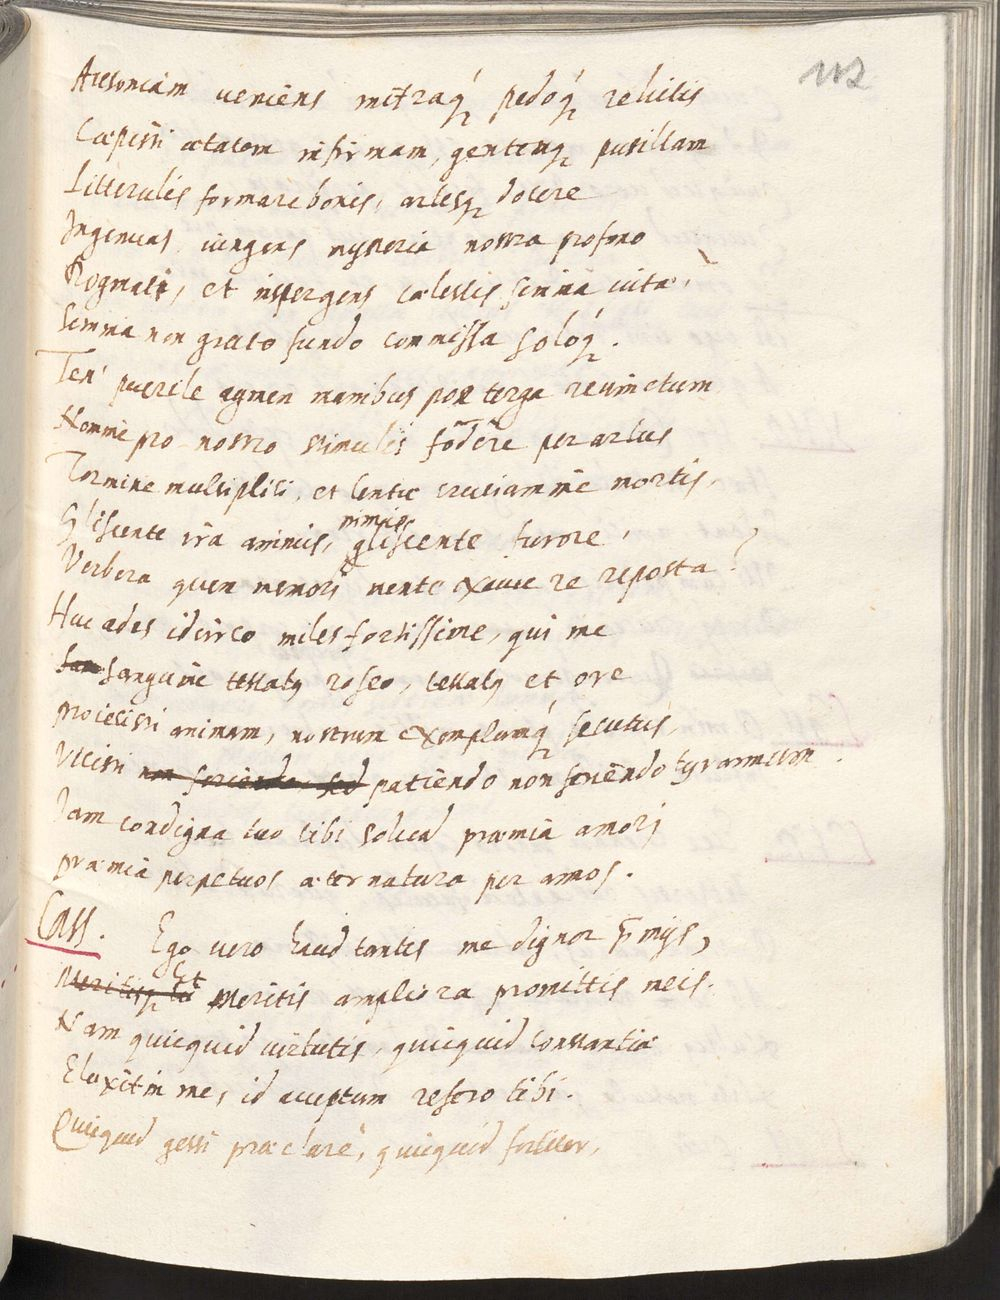 112
Ausoniam veniens mitraq́; pedoq́; relictis
Cœpisti ætatem infirmam, gentemq; pusillam
Litterulis formare bonis, artesq; docere
Ingenuas, iungens mysteria nostra profano
Dogmati, et inspergens cœlestis semina vitæ,
Semina non grato fundo commissa soloq́;.
Ten' puerile agmen manibus post terga revinctum
Nomine pro nostro stimulis fodere per artus
Tormine multiplici, et lentæ cruciamine mortis,
Gliscente ira animis, nimiùm gliscente furore,
Verbera quem memori mente exeruere reposta?
Huc ades idcirco miles fortissime, qui me
sanguine testatq; roseo, testatq; et ore
proiecisti animam, nostrum exemplumq́; secutus
Vicisti non feriendo, sed patiendo non feriendo tyrannum.
Iam condigna tuo tibi solvet præmia amori
præmia perpetuos æternatura per annos.
Cass. Ego vero haud tantis me dignor p̄mijs,
Meritisq; Et Meritis ampliora promittis meis.
Nam quicquid virtutis, quicquid constantiæ
Eluxit in me, id acceptum refero tibi.
Quicquid gessi præclarè, quicquid fortiter,